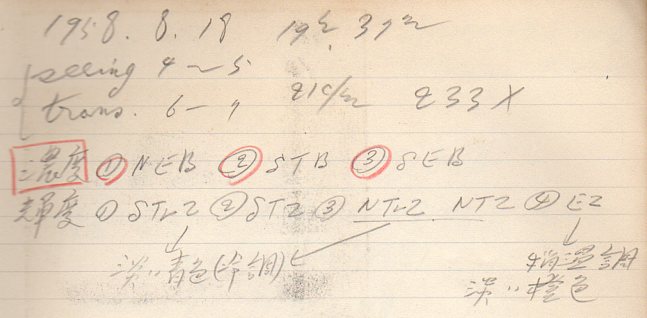 1958. 8. 18 19h 37m
seeing 4~5
trans. 6-7 21c/m 233X
濃度 ① NEB ② STB ③ SEB
輝度 ① STrZ ② STZ ③ NTrZ NTZ ④ EZ
淡い青色(冷調) 稍温調
淡い橙色